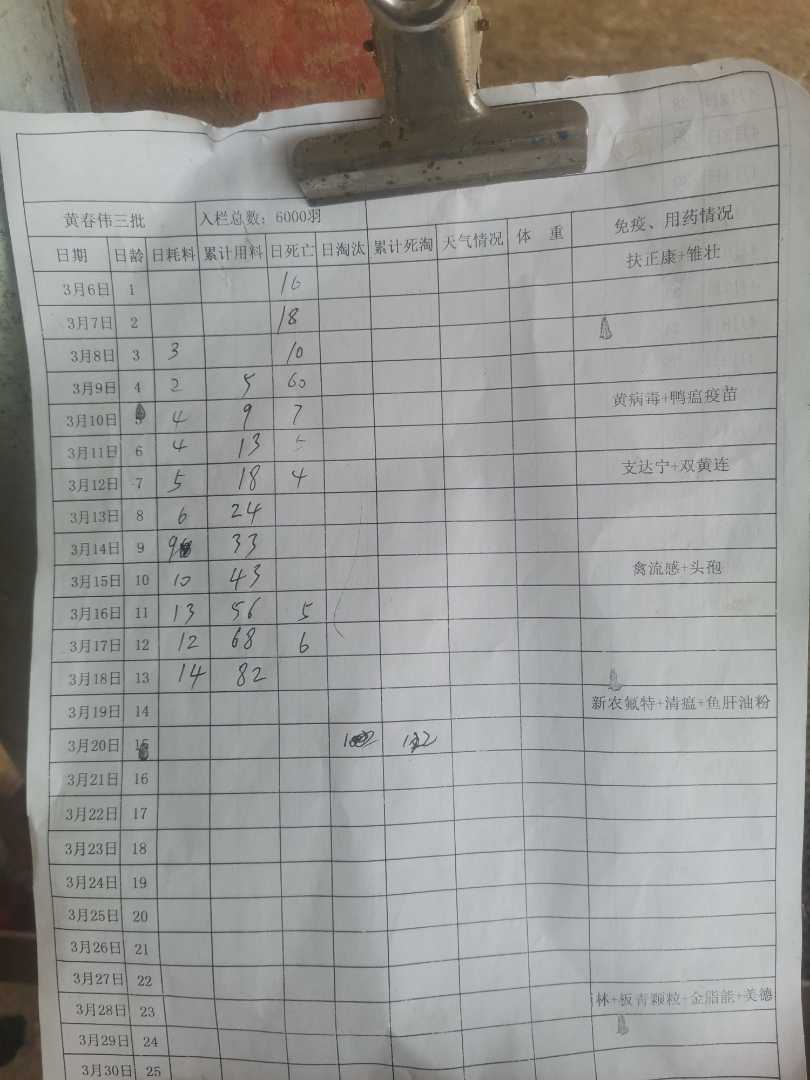 黄春伟三批 入栏总数：6000羽
日期 日龄 日耗料 累计用料 日死亡 日淘汰 累计死淘 天气情况 体 重 免疫、用药情况
3月6日 1 16 扶正康+雏壮
3月7日 2 18
3月8日 3 3 10
3月9日 4 2 5 60
3月10日 4 9 7 黄病毒+鸭瘟疫苗
3月11日 6 4 13 5
3月12日 7 5 18 4 支达宁+双黄连
3月13日 8 6 24
3月14日 9 9 33
3月15日 10 10 43 禽流感+头孢
3月16日 11 13 56 5
3月17日 12 12 68 6
3月18日 13 14 82
3月19日 14 新农氟特+清瘟+鱼肝油粉
3月20日 15 132
3月21日 16
3月22日 17
3月23日 18
3月24日 19
3月25日 20
3月26日 21
3月27日 22
3月28日 23 林+板青颗粒+金脂能+美德
3月29日 24
3月30日 25